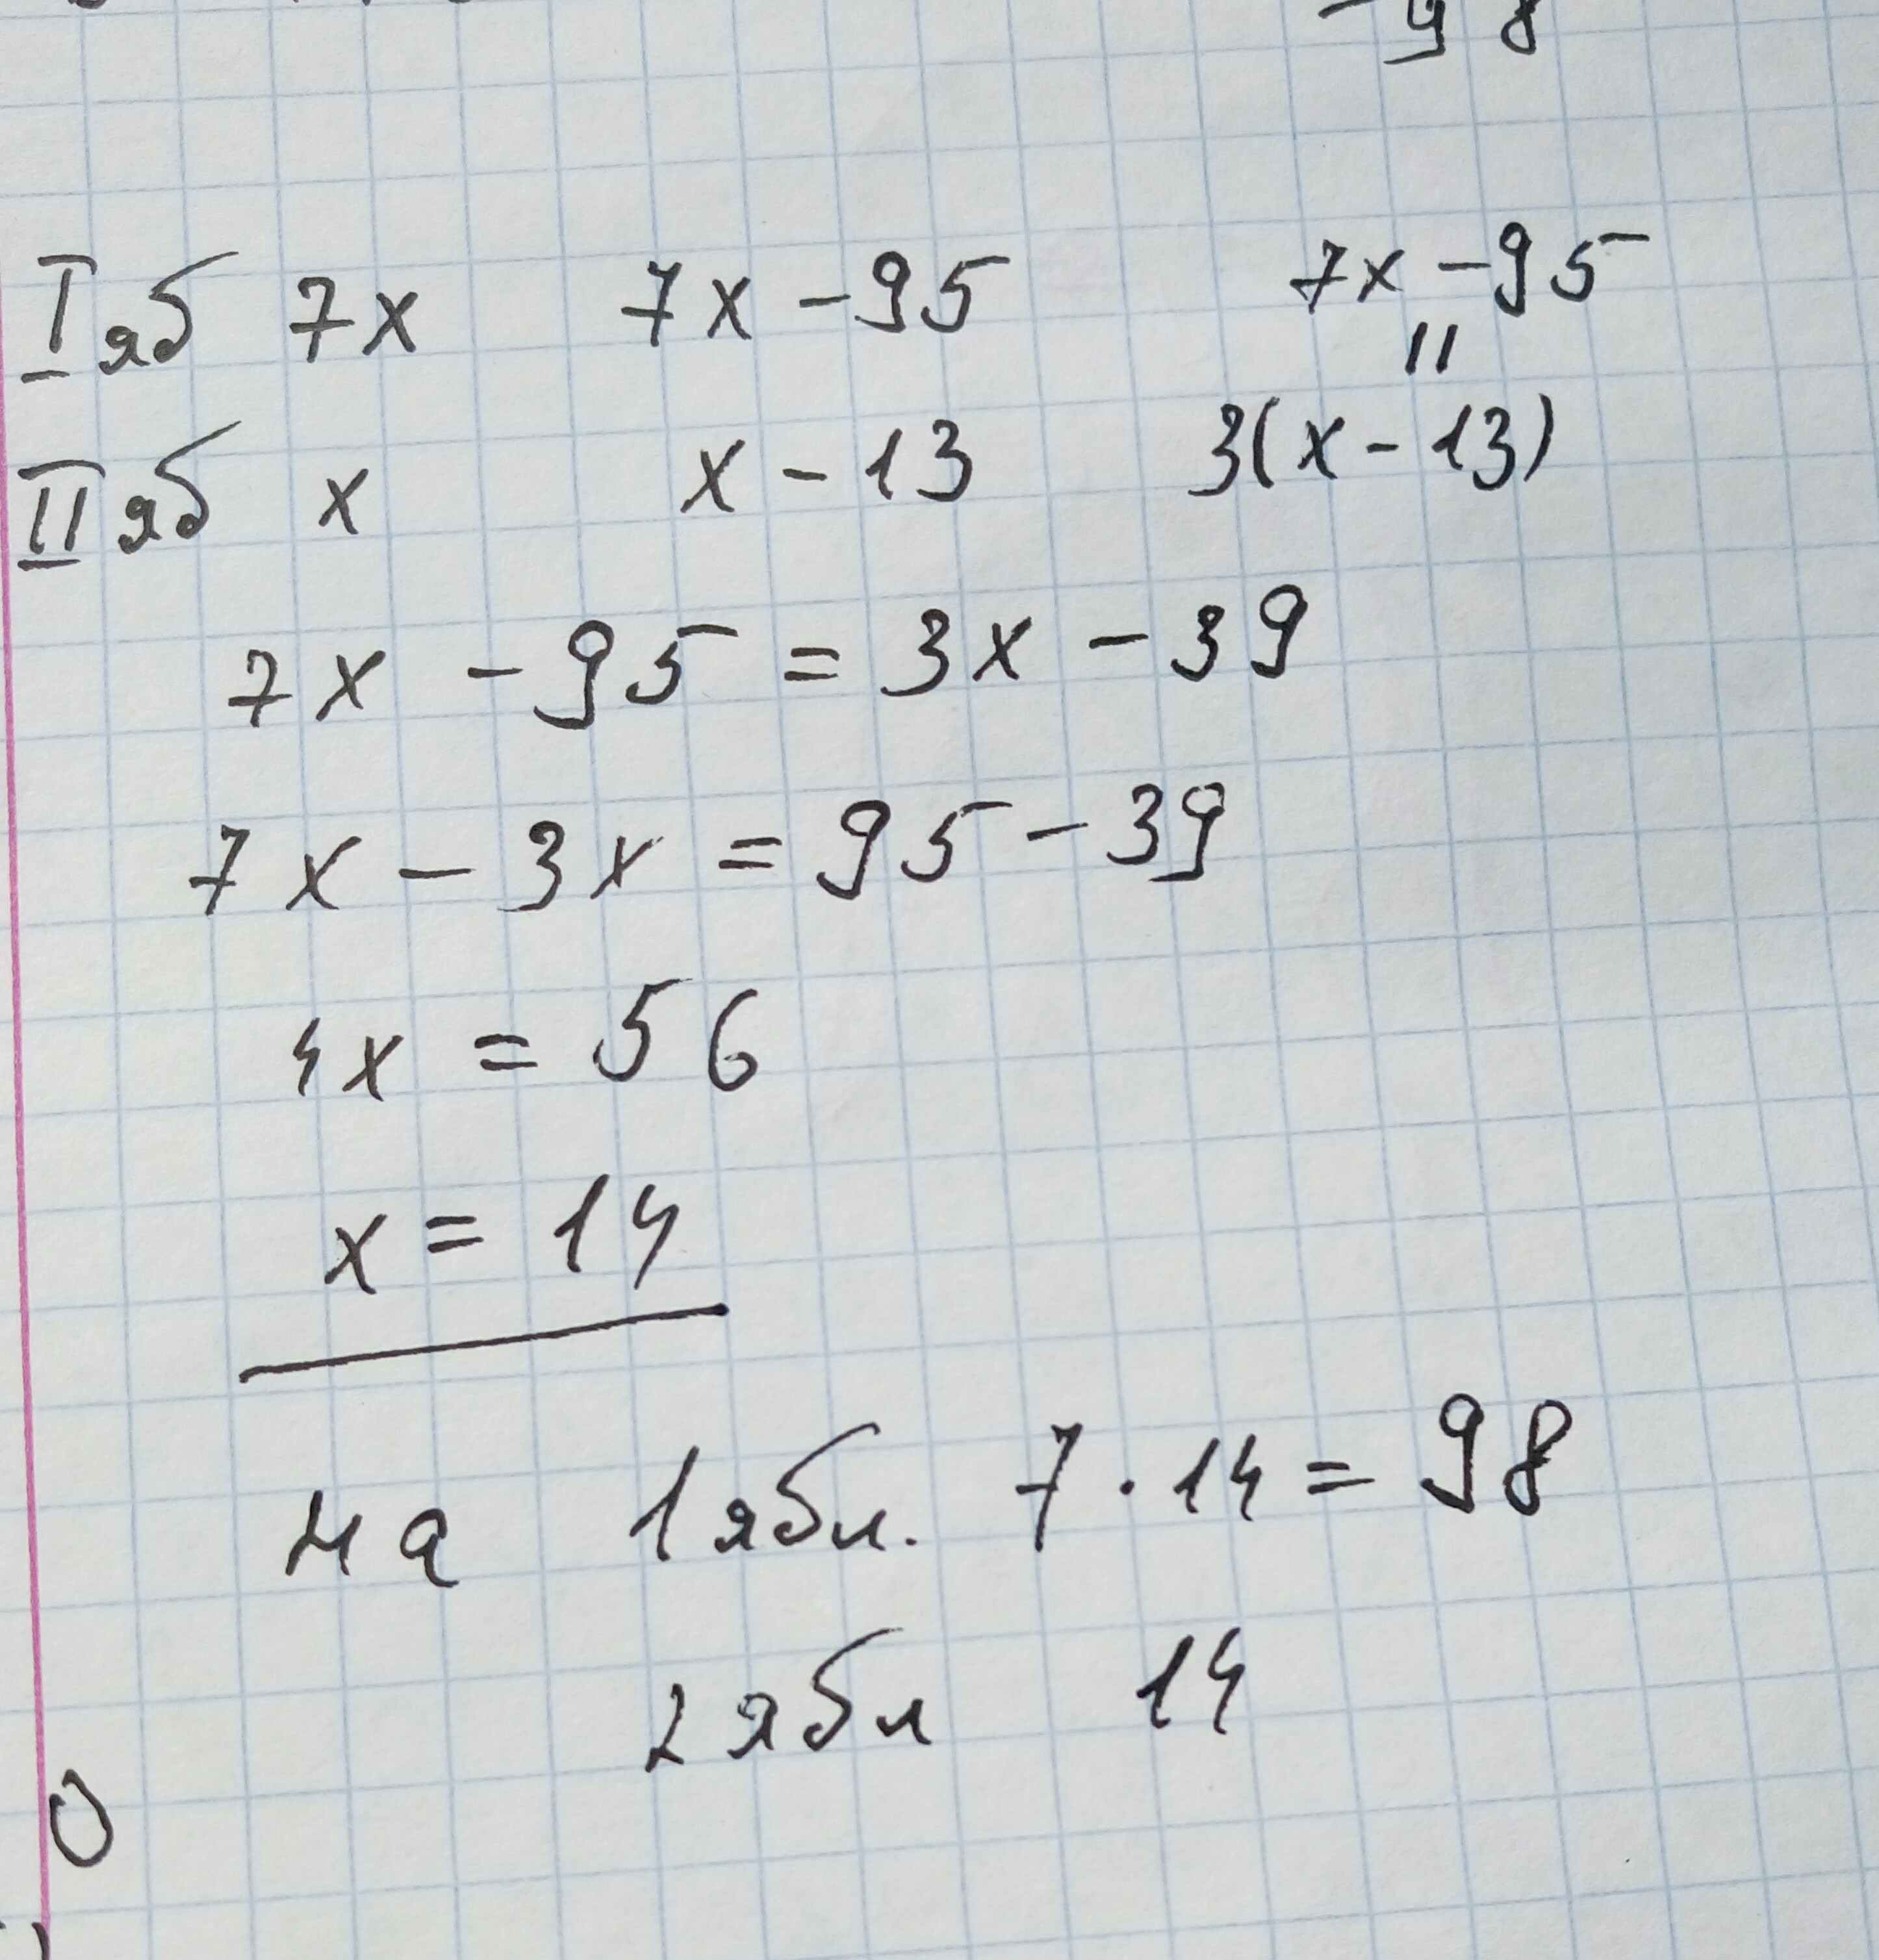 -98
I яб 7x 7x - 95 7x - 95
||
II яб x x - 13 3(x - 13)
7x - 95 = 3x - 39
7x - 3x = 95 - 39
4x = 56
x = 14
на 1 ябл. 7 · 14 = 98
2 ябл 14
0